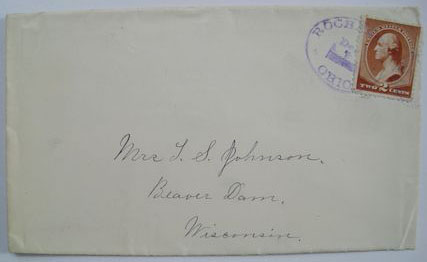 ROCH
De
OHIO
TWO 2 CENTS
Mrs T. S. Johnson.
Beaver Dam,
Wisconsin.